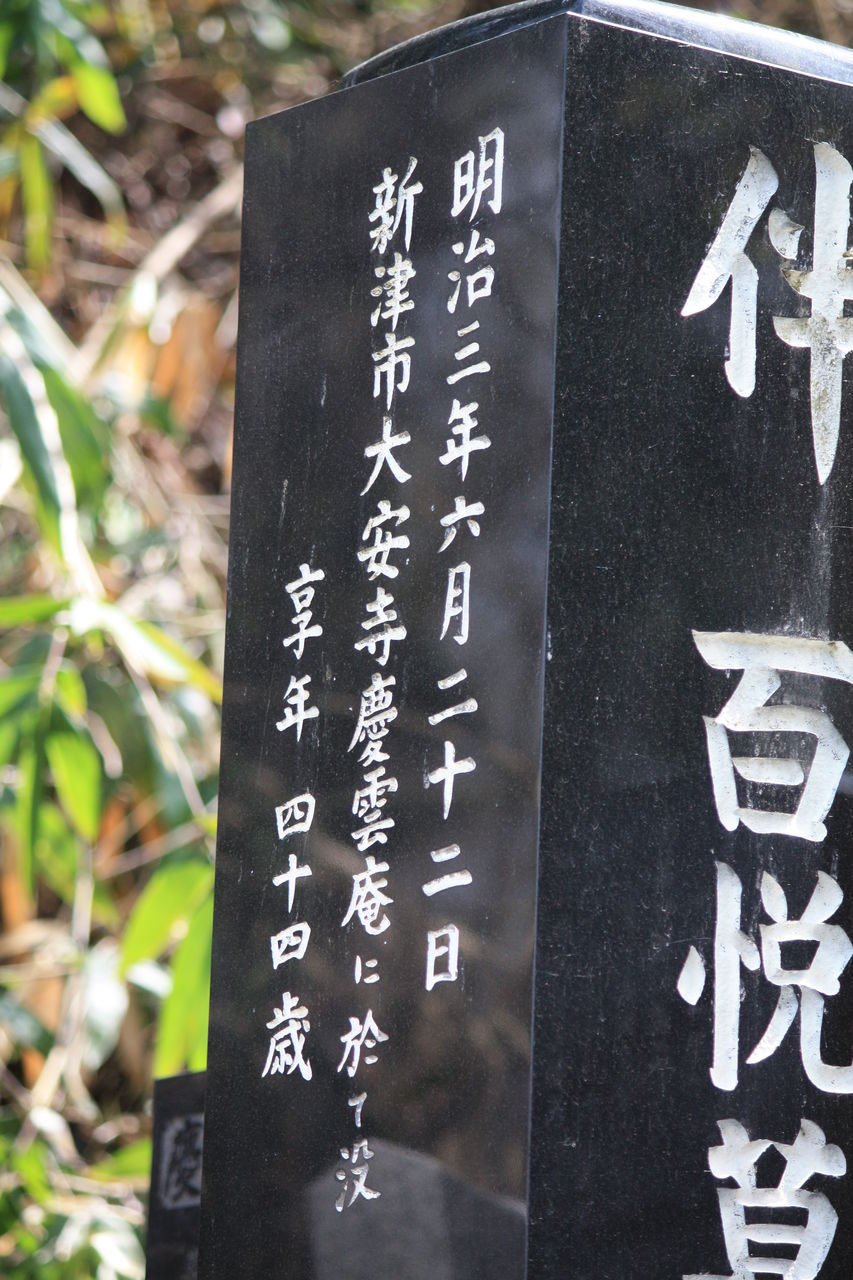 伴百悦墓
明治三年六月二十二日
新津市大安寺慶雲庵に於て没
享年 四十四歳
慶